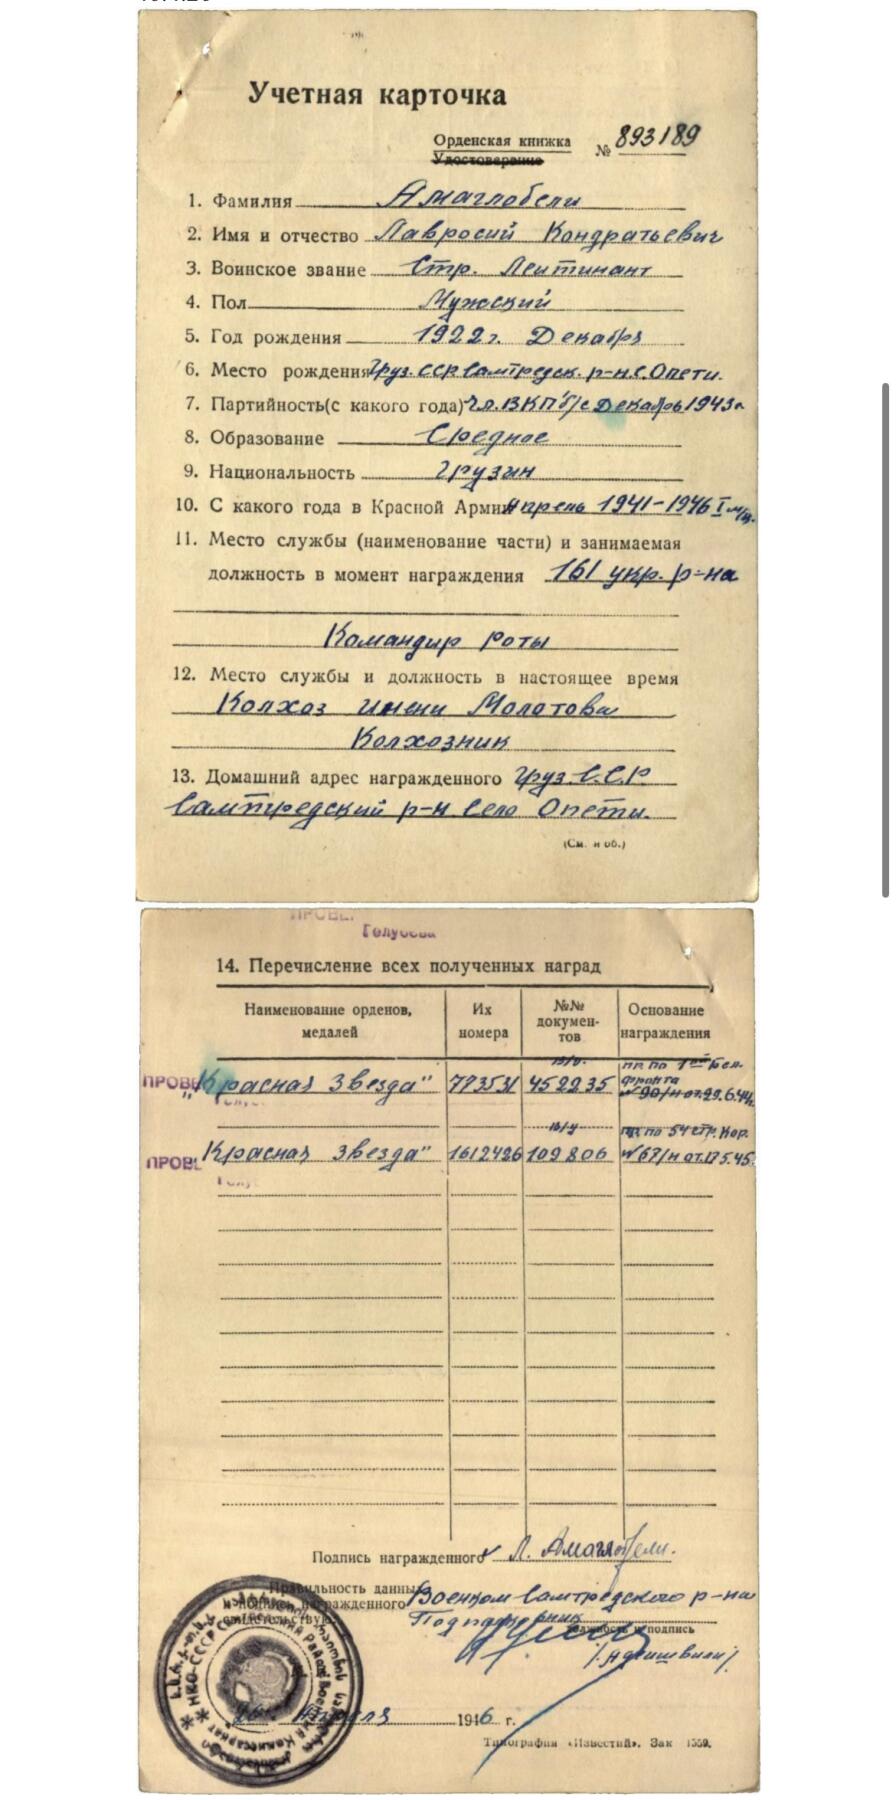 Учетная карточка
Орденская книжка
Удостоверение
№ 893189
1. Фамилия Амаглобели
2. Имя и отчество Лавросий Кондратьевич
3. Воинское звание Стр. Леитинант
4. Пол Мужский
5. Год рождения 1922г. Декабря
6. Место рождения Груз. ССР Самтредск. р-н с. Опети.
7. Партийность(с какого года) Чл. ВКП/б/с Декабрь 1943г
8. Образование Среднее
9. Национальность Грузин
10. С какого года в Красной Армии Апрель 1941-1946 I
11. Место службы (наименование части) и занимаемая
должность в момент награждения 161 укр. р-на
Командир роты
12. Место службы и должность в настоящее время
Колхоз имени Молотова
Колхозник
13. Домашний адрес награжденного Груз С.С.Р.
Самтредский р-н село Опети.
(См. н об.)
ПРОВЕ
Голубева
14. Перечисление всех полученных наград
Наименование орденов, медалей
Их номера
№№ докумен-тов
Основание награждения
ПРОВЕ
"Красная Звезда" 773531 в/у. 452235 пр. по 1ой Бел. фронта №90/н от.29.6.44г.
ПРОВЕ
Красная Звезда" 1612426 в/у 109806 пр. по 54 стр. Кор. №67/н от.17.5.45.
Подпись награжденного Л. Амаглобели.
Правильность данных
и подпись награжденного
свидетельствую:
Военком Самтредского р-на
Подполковник
должность и подпись
26 Апреля 1946 г.
Типография «Известий». Зак 1559.